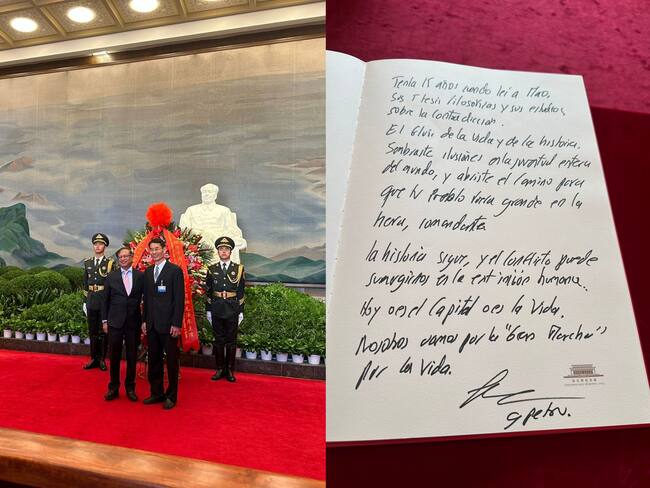 Tenía 15 años cuando leí a Mao,
Sus Tesis filosóficas y sus estudios,
sobre la contradicción.
El fluir de la vida y de la historia.
Sembraste ilusiones en la juventud entera
del mundo, y abriste el camino para
que tu Pueblo fuera grande en la
tierra, comandante
La historia sigue, y el conflicto puede
sumergirnos en la extinción humana.
Hoy o es el Capital o es la Vida.
Nosotros vamos por la "Gran Marcha"
por la Vida.
GPetro.